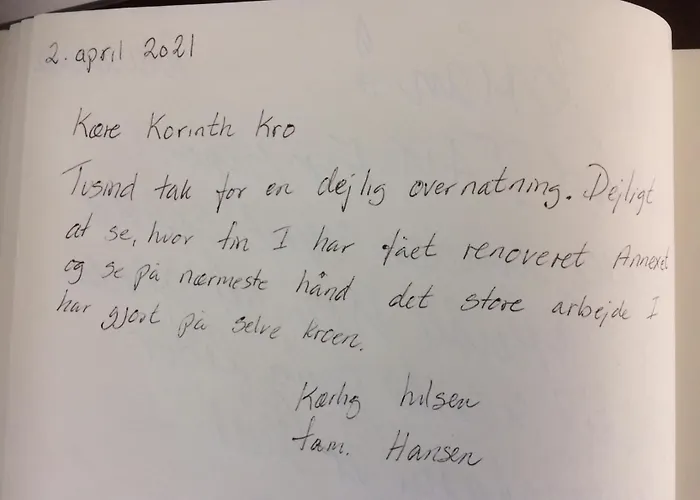 2. april 2021
Kære Korinth Kro
Tusind tak for en dejlig overnatning. Dejligt
at se, hvor fin I har fået renoveret Annexet
og se på nærmeste hånd det store arbejde I
har gjort på selve kroen.
Kærlig hilsen
fam. Hansen